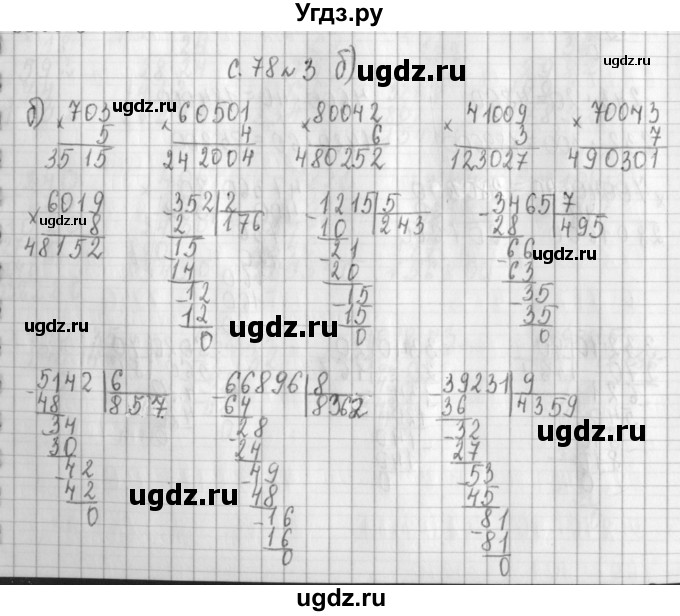 Угдз.ру
с. 78 № 3 б) ugdz.ru
б) 703 ugdz.ru 60501 80042 41009 70043
× 5 × 4 × 6 × 3 × 7
3515 242004 480252 123027 490301
6019 - 352 | 2 - 1215 | 5 - 3465 | 7
× 8 ugdz.ru 2 176 10 243 28 495
48152 - 15 - 21 - 66 ugdz.ru
14 20 63
- 12 - 15 - 35
ugdz.ru 12 ugdz.ru 15 35
0 0 0
- 5142 | 6 - 66896 | 8 - 39231 | 9
48 857 64 8362 36 4359
- 34 - 28 - 32
30 24 27
- 42 - 49 - 53
42 ugdz.ru 48 45 ugdz.ru
0 - 16 - 81
16 81
0 0
ugdz.ru